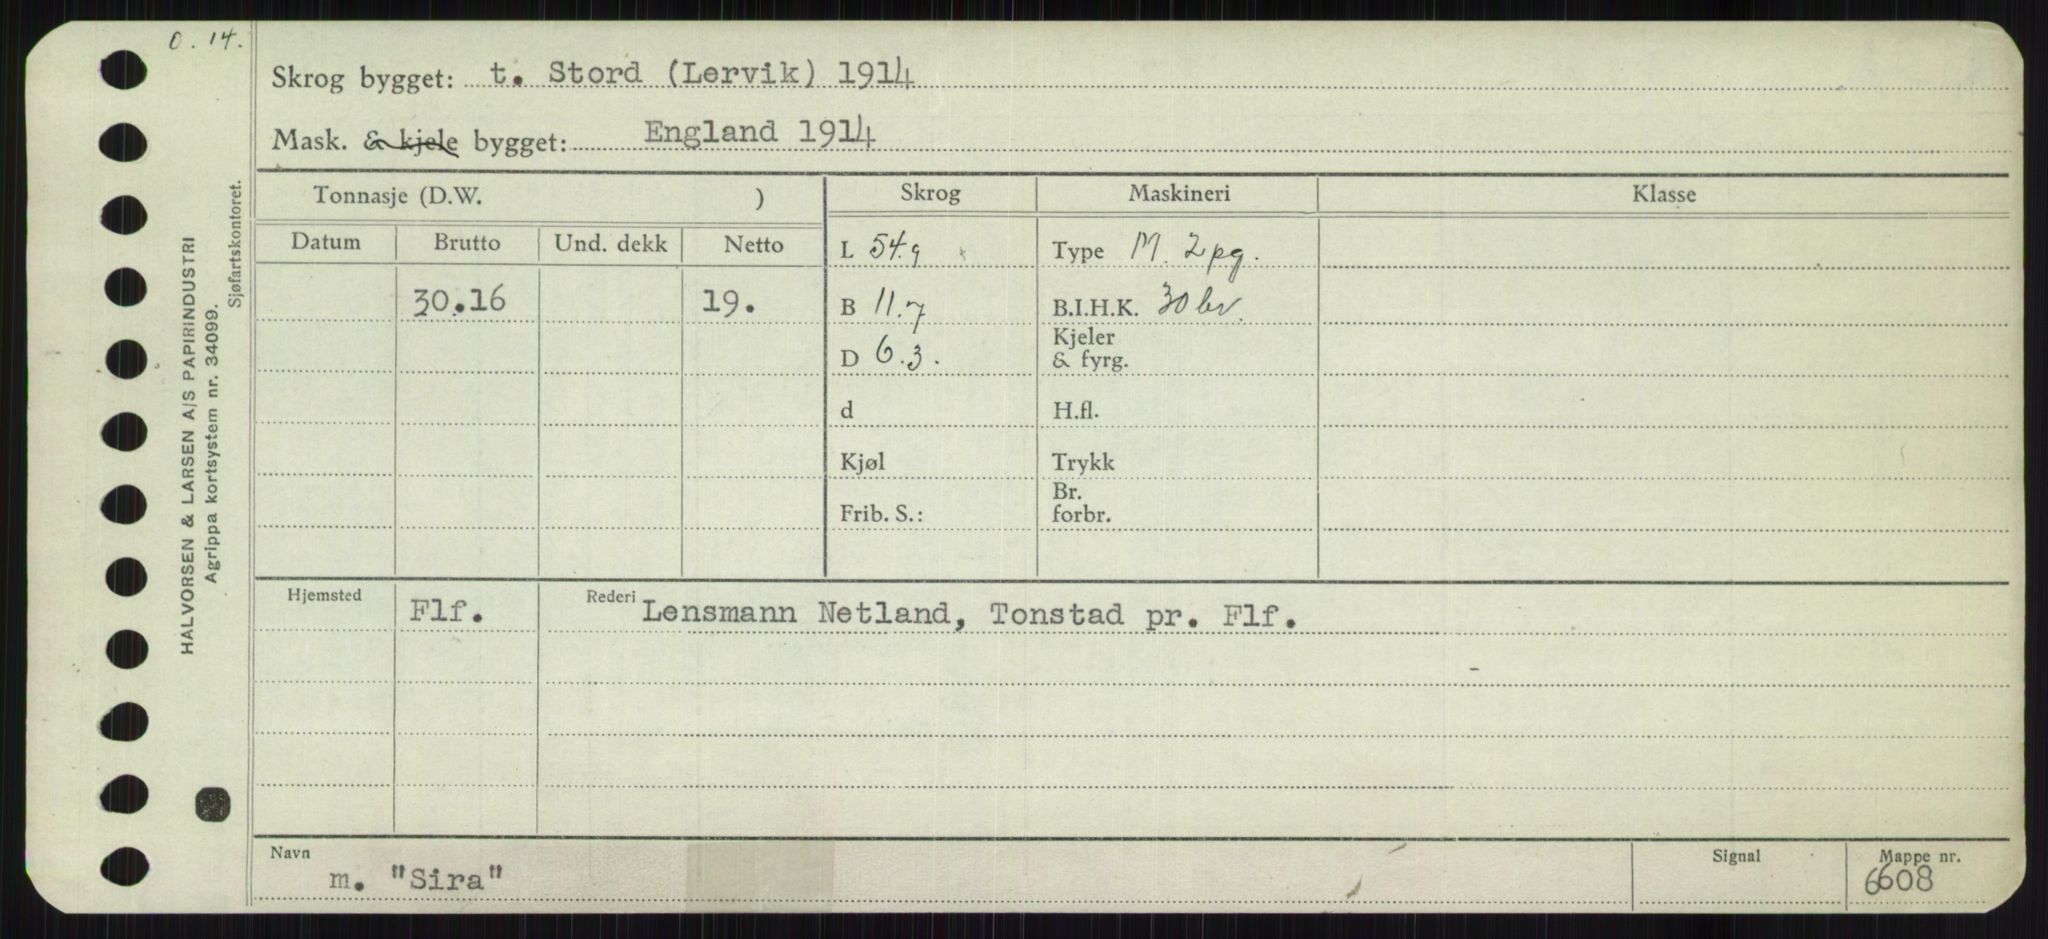 O. 14.
Skrog bygget: t. Stord (Lervik) 1914
Mask. & kjele bygget: England 1914
Tonnasje (D.W. ) Skrog Maskineri Klasse
Datum Brutto Und. dekk Netto
L 54.9 Type M. 2 pg.
30.16 19. B 11.7 B.I.H.K. 30 br.
D 6.3. Kjeler & fyrg.
d H.fl.
Kjøl Trykk
Frib. S.: Br. forbr.
Hjemsted Flf. Rederi Lensmann Netland, Tonstad pr. Flf.
Navn Signal Mappe nr.
m. "Sira" 6608
HALVORSEN & LARSEN A/S PAPIRINDUSTRI
Agrippa kortsystem nr. 34099.
Sjøfartskontoret.